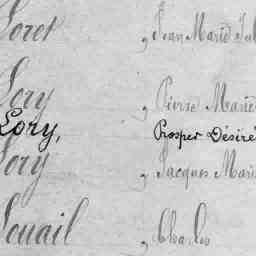 Loret , Jean Marie Jul
Lory , Pierre Marie
Lory, Prosper Désiré
Lory , Jacques Mari
Louail , Charles